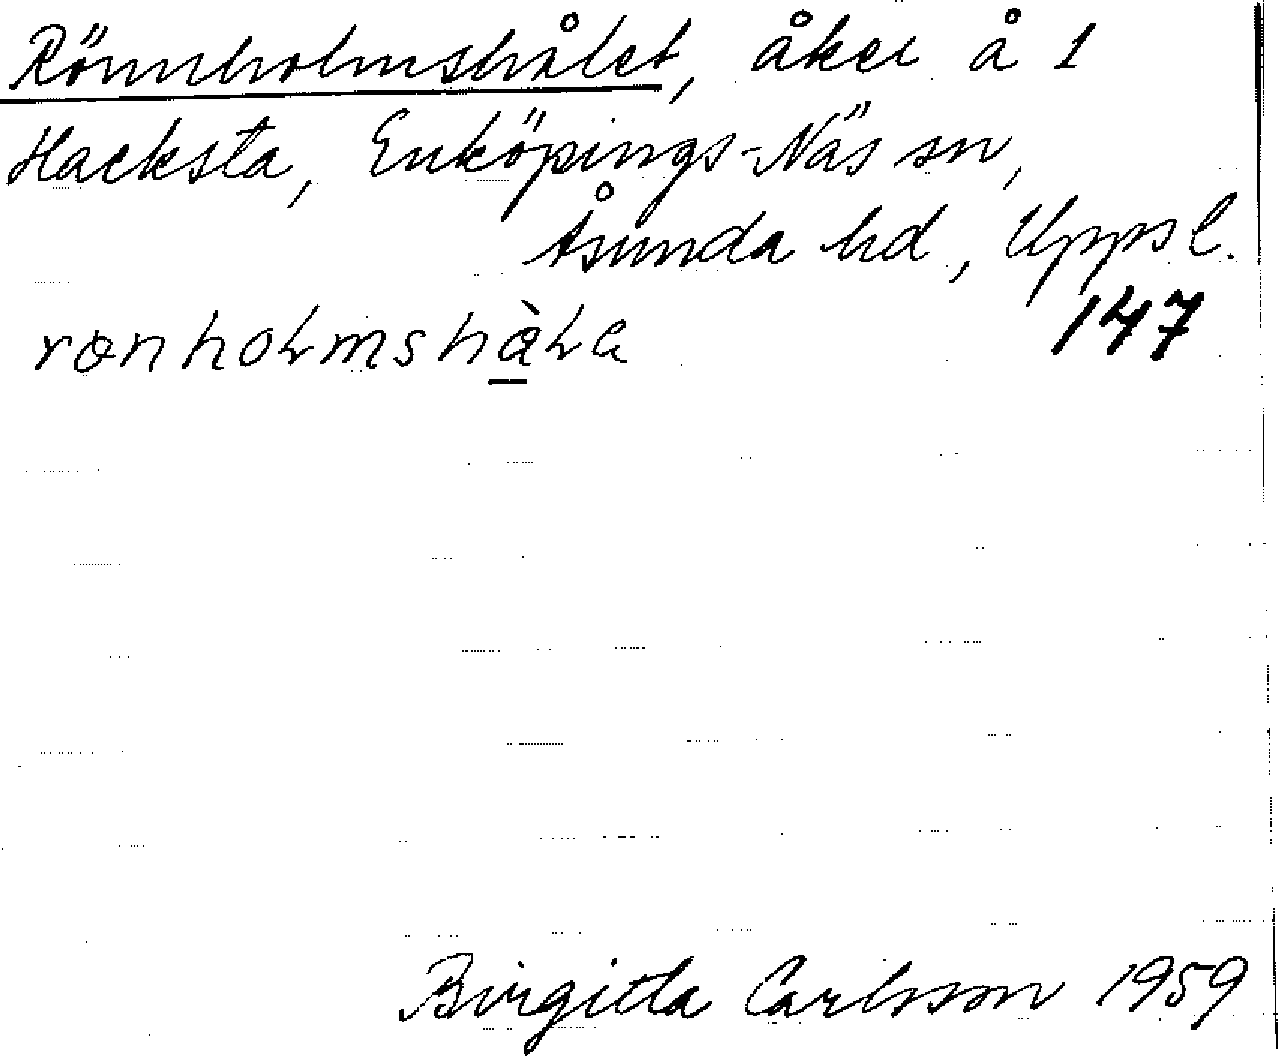 Rönnholmshålet, åker å 1
Hacksta, Enköpings-Näs sn,
Åsunda hd, Uppsl.
147
Birgitta Carlsson 1959